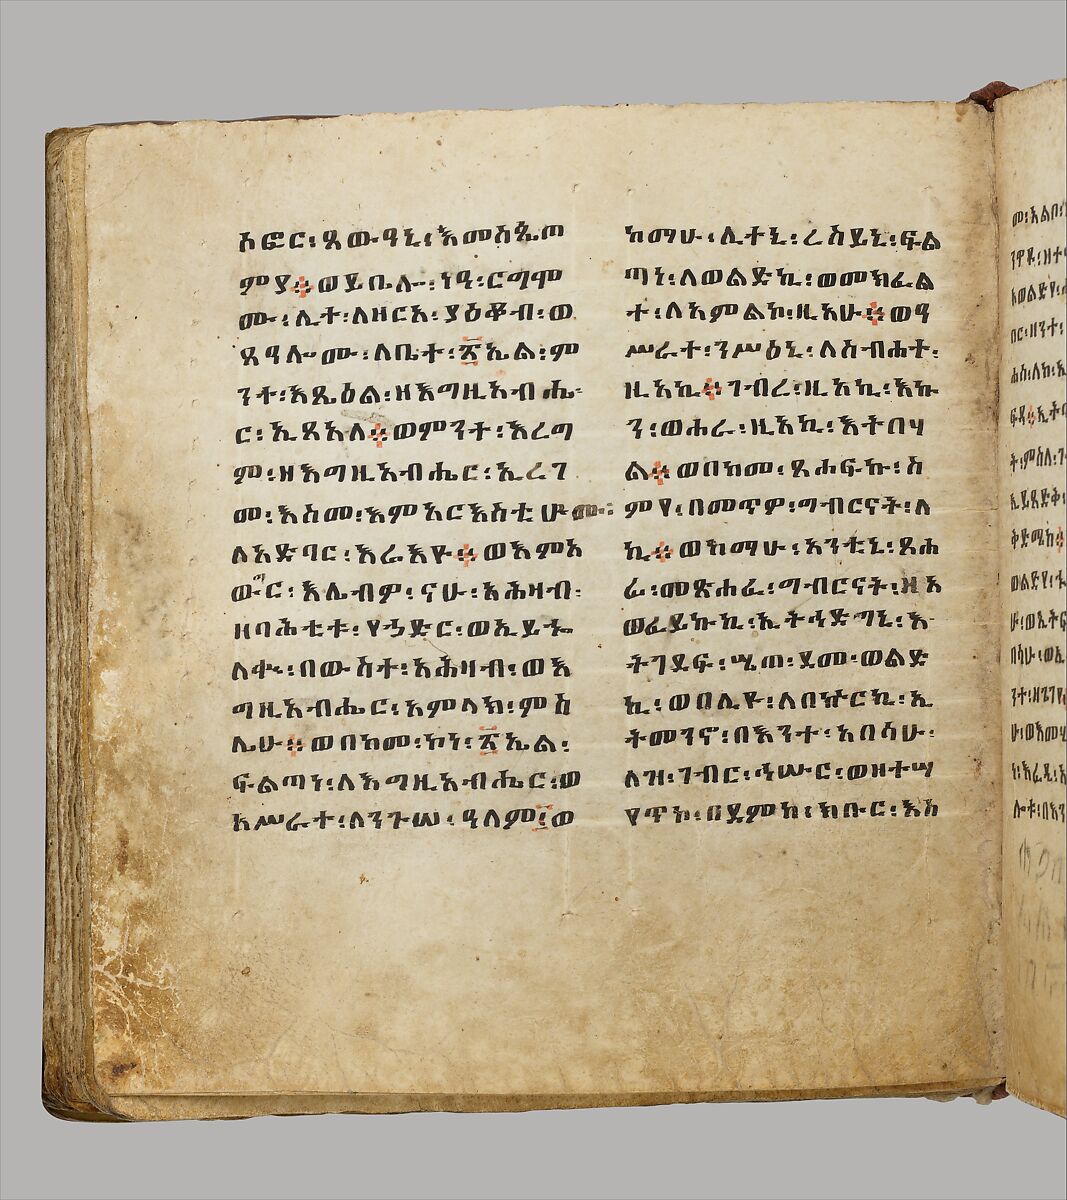 አፎር፡ጸውዓኒ፡እመስጴጦ
ምያ።ወይቤሎ፡ነዓ፡ርግሞ
ሙ፡ሊተ፡ለዘርአ፡ያዕቆብ፡ወ
ጸዓሎሙ፡ለቤተ፡፳ኤል፡ም
ንተ፡እጼዕል፡ዘእግዚአብሔ
ር፡ኢጸአለ።ወምንተ፡እረግ
ም፡ዘእግዚአብሔር፡ኢረገ
መ፡እስመ፡እምአርእስቲሆሙ፡
ለአድባር፡እሬእዮ።ወእምአ
ውግር፡እሌብዎ፡ናሁ፡አሕዛብ፡
ዘባሕቲቱ፡የኃድር፡ወኢይት
ኌለቍ፡በውስተ፡አሕዛብ፡ወእ
ግዚአብሔር፡አምላክ፡ምስ
ሌሁ።ወበከመ፡ኮነ፡፳ኤል፡
ፍልጣነ፡ለእግዚአብሔር፡ወ
አሥራተ፡ለንጉሠ፡ዓለም፡ወ
ከማሁ፡ሊተኒ፡ረስይኒ፡ፍል
ጣነ፡ለወልድኪ፡ወመክፈል
ተ፡ለአምልኮ፡ዚአሁ።ወዓ
ሥራተ፡ንሥዕኒ፡ለስብሐተ፡
ዚአኪ።ገብረ፡ዚአኪ፡እኩ
ን፡ወሐራ፡ዚአኪ፡እትበሃ
ል።ወበከመ፡ጸሐፍኩ፡ስ
ምየ፡በመጥዎ፡ግብርናት፡ለ
ኪ።ወከማሁ፡አንቲኒ፡ጸሐ
ፊ፡መጽሐፈ፡ግብርናት፡ዘአ
ወፈይኩኪ፡ኢትኅድግኒ፡እ
ትገደፍ፡ሤጠ፡ደመ፡ወልድ
ኪ፡ወበሊዮ፡ለበዀርኪ፡ኢ
ትመንኖ፡በእንተ፡አበሳሁ፡
ለዝ፡ገብር፡ኅሡር፡ወዘተሣ
የጥኮ፡በደምከ፡ክቡር፡እስ